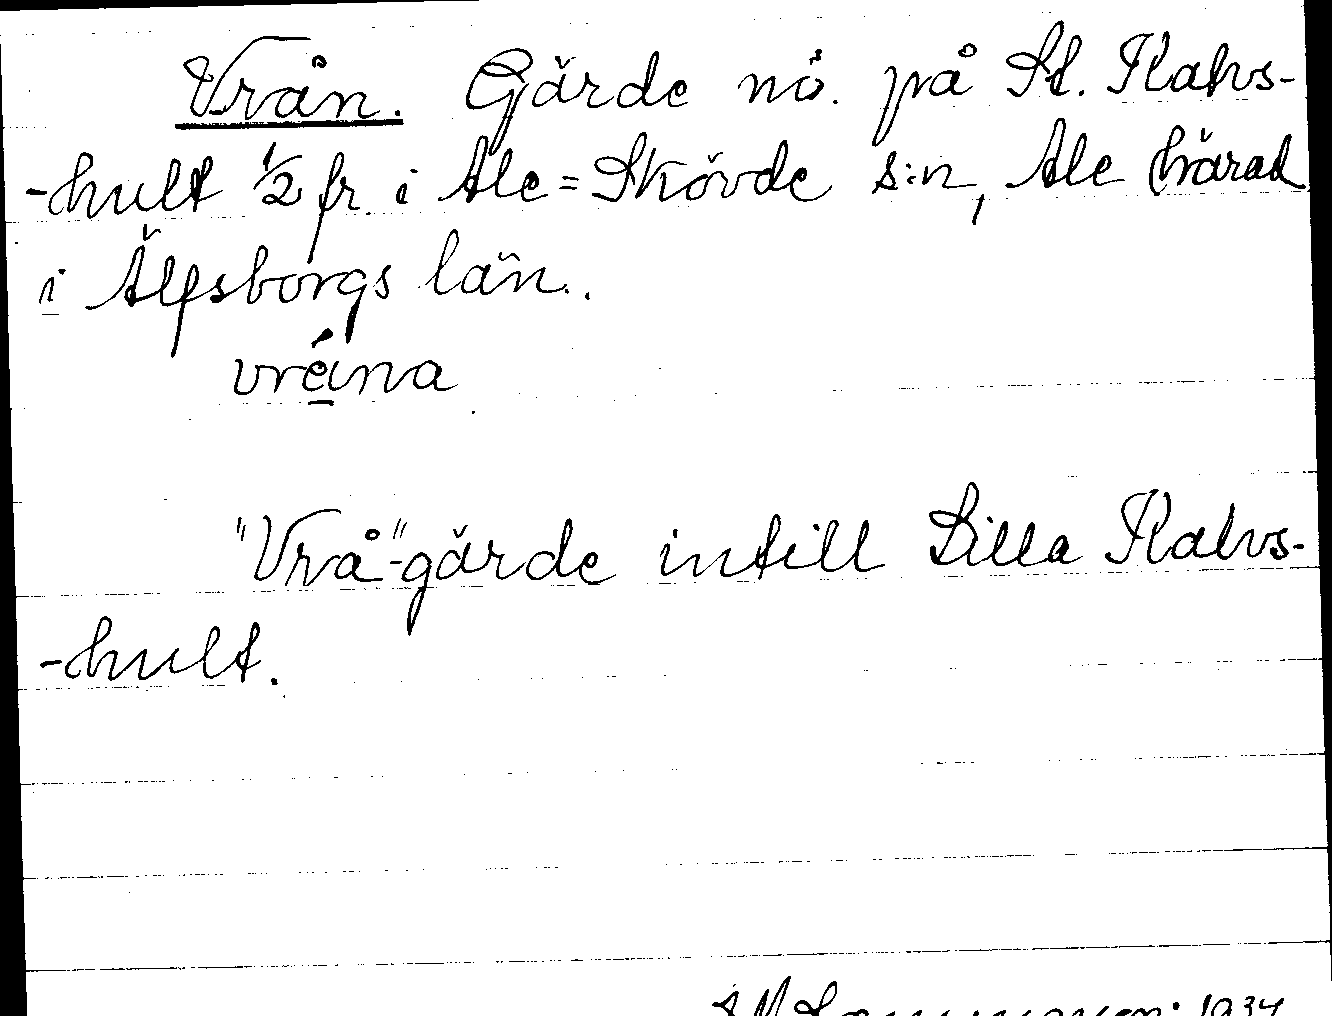 Vrån. Gärde nö. på St. Kalvs-
-hult ½ fr. i Ale=Skövde s:n, Ale härad
i Älfsborgs län.
vréina
"Vrå"-gärde intill Lilla Kalvs-
-hult.
1934